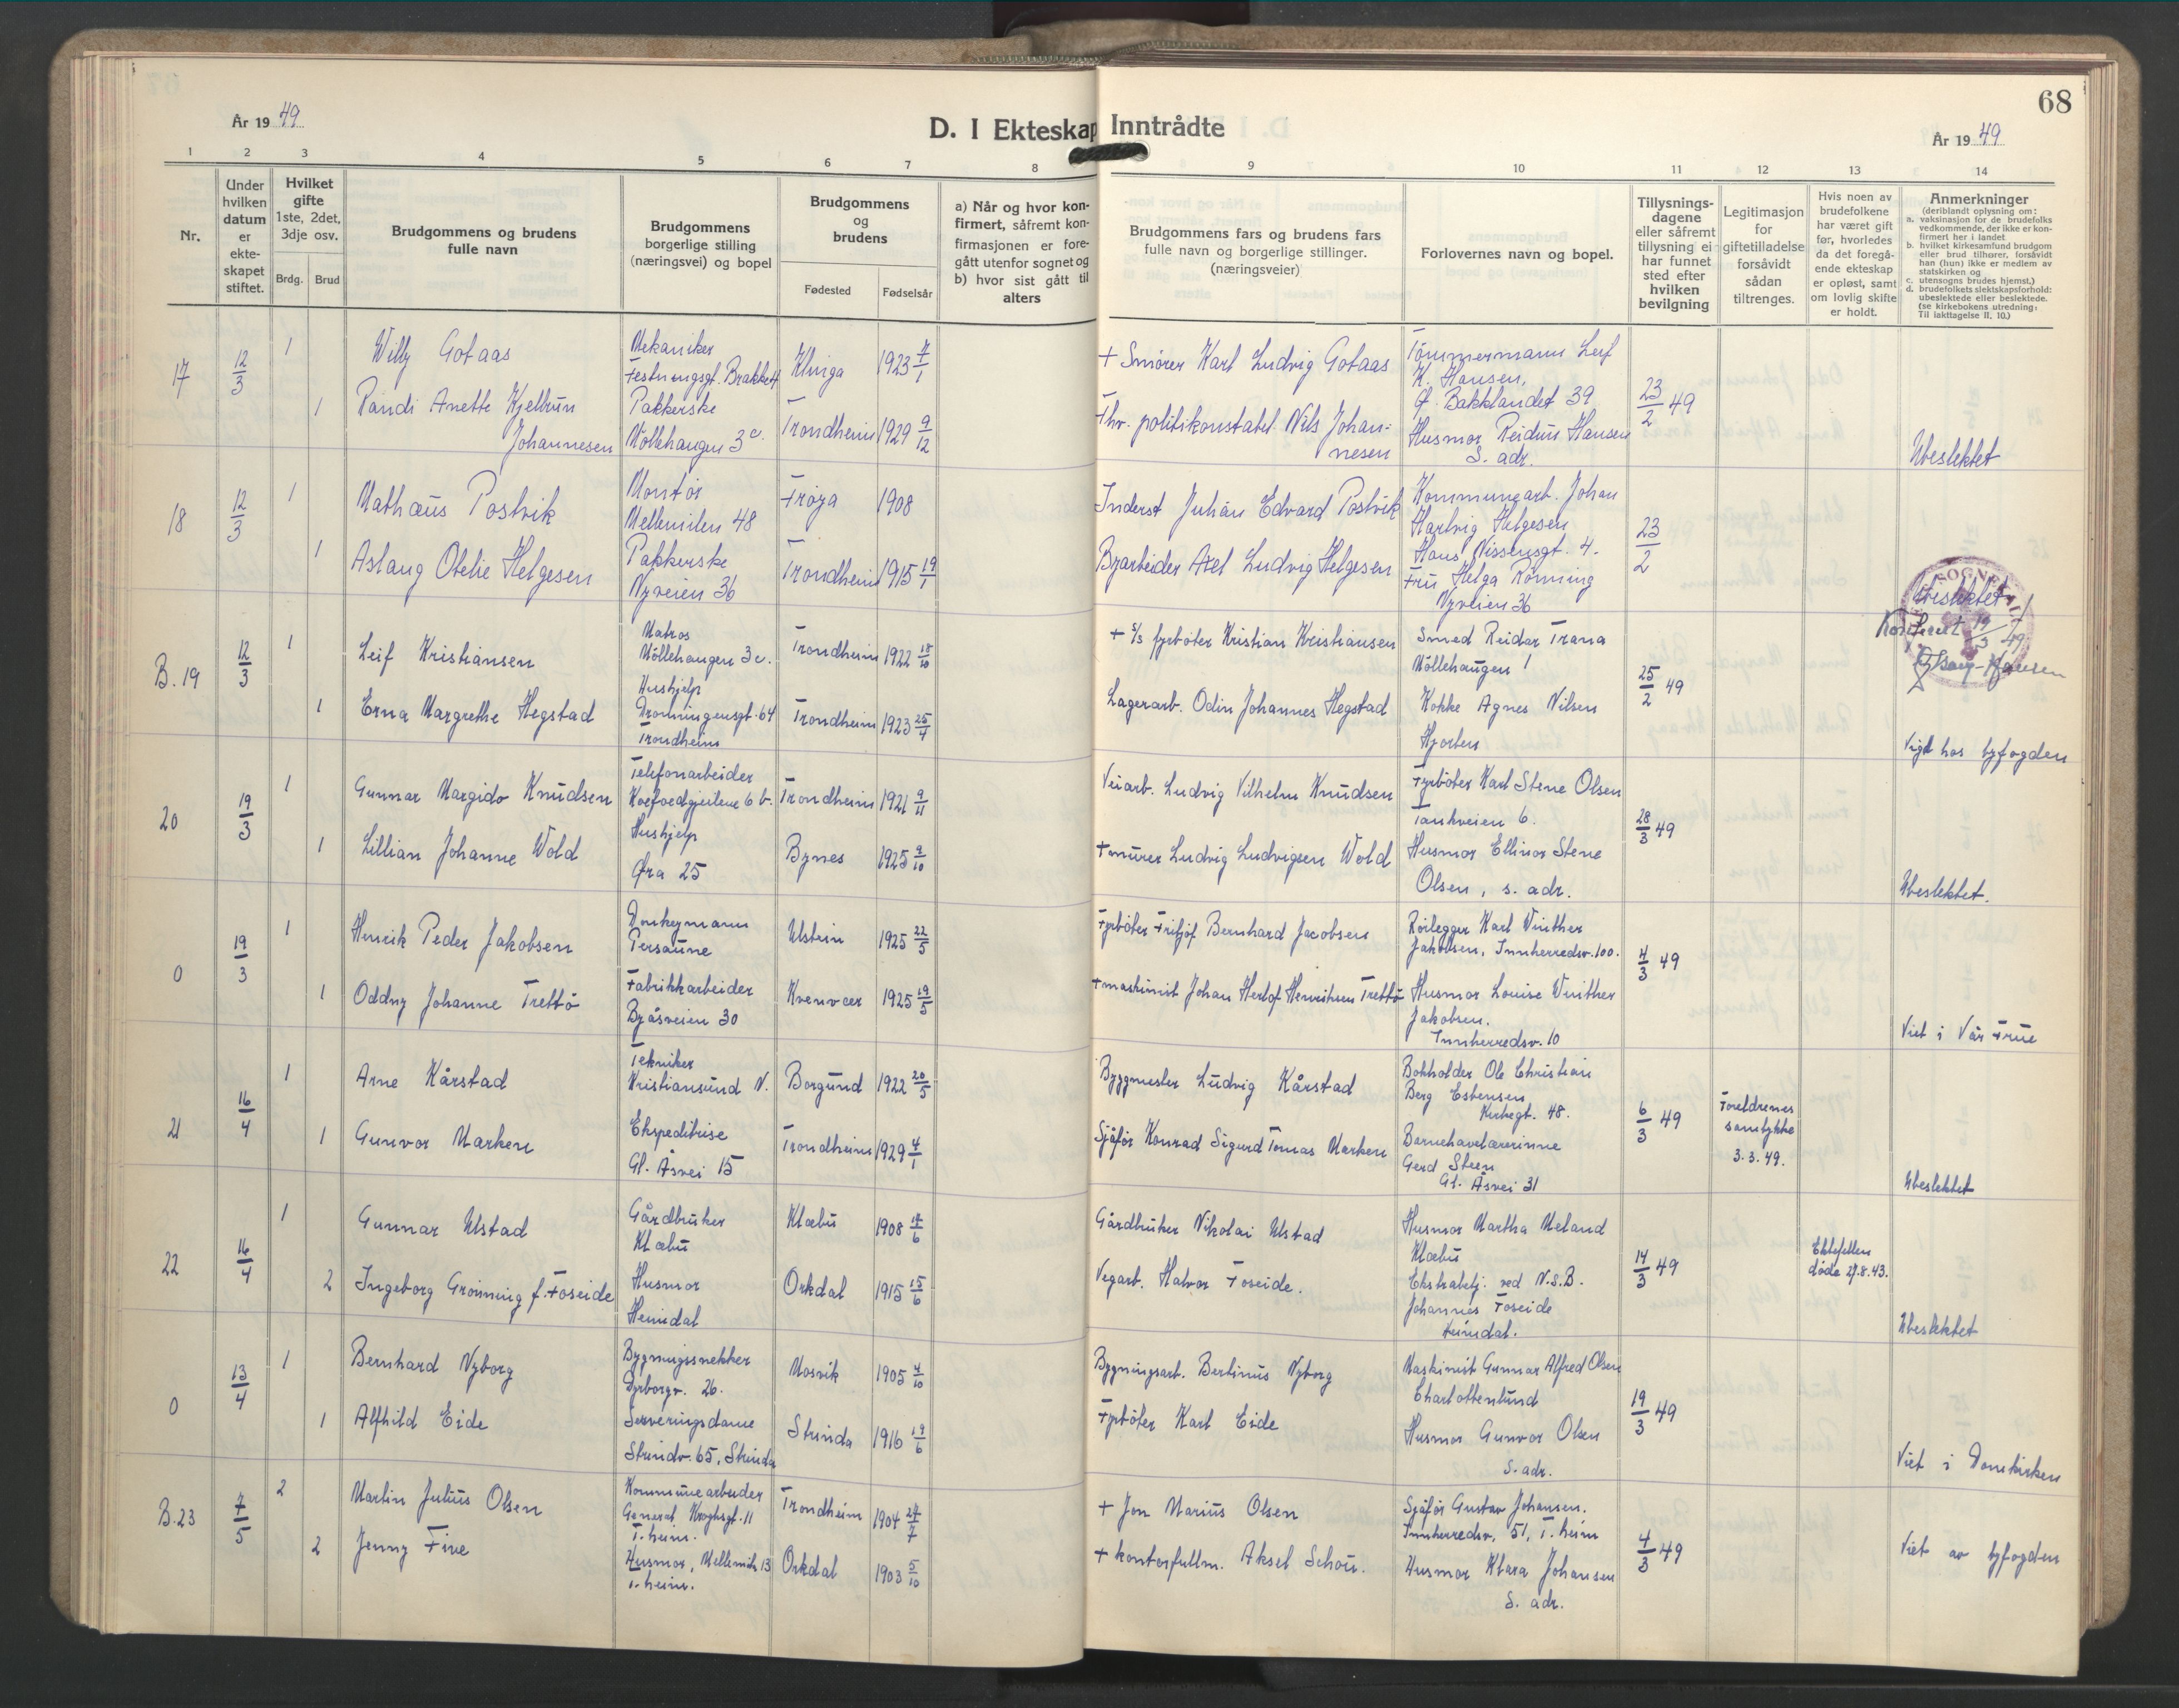 68
År 19 49
D. I Ekteskap Inntrådte
År 19 49
1 2 3 4 5 6 7 8 9 10 11 12 13 14
Nr.
Under
hvilken
datum
er
ekte-
skapet
stiftet.
Hvilket
gifte
1ste, 2det,
3dje osv.
Brdg. Brud
Brudgommens og brudens
fulle navn
Brudgommens
borgerlige stilling
(næringsvei) og bopel
Brudgommens
og
brudens
Fødested Fødselsår
a) Når og hvor kon-
firmert, såfremt kon-
firmasjonen er fore-
gått utenfor sognet og
b) hvor sist gått til
alters
Brudgommens fars og brudens fars
fulle navn og borgerlige stillinger.
(næringsveier)
Forlovernes navn og bopel.
Tillysnings-
dagene
eller såfremt
tillysning ei
har funnet
sted efter
hvilken
bevilgning
Legitimasjon
for
giftetilladelse
forsåvidt
sådan
tiltrenges.
Hvis noen av
brudefolkene
har været gift
før, hvorledes
da det foregå-
ende ekteskap
er opløst, samt
om lovlig skifte
er holdt.
Anmerkninger
(deriblandt oplysning om:
a. vaksinasjon for de brudefolks
vedkommende, der ikke er kon-
firmert her i landet
b. hvilket kirkesamfund brudgom
eller brud tilhører, forsåvidt
han (hun) ikke er medlem av
statskirken og
c. utensogns brudes hjemst,)
d. brudefolkets slektskapsforhold:
ubeslektede eller beslektede.
(se kirkebokens utredning:
Til iakttagelse II, 10.)
17 12/3 1 Willy Gotaas
Mekaniker
Festningsgt. Brakke 4
Klinga 1923 7/1
+ Smører Karl Ludvig Gotaas
Tömmermann Leif
K. Hansen,
Ø. Bakklandet 39
23/2 49
1 Randi Anette Kjellrun
Johannesen
Pakkerske
Möllehaugen 3 c.
Trondheim 1929 9/12
Fhv. politikonstabel Nils Johan-
nesen
Husmor Reidun Hansen
S. adr.
Ubeslektet
18 12/3 1 Mathæus Postvik
Montör
Mellemilen 48
Fröya 1908
Inderst Julian Edvard Postvik
Kommunearb. Johan
Hartvig Helgesen
Hans Nissensgt. 4.
23/2
1 Aslaug Otelie Helgesen
Pakkerske
Nyveien 36
Trondheim 1915 19/1
Byarbeider Axel Ludvig Helgesen
Fru Helga Rönning
Nyveien 36
Ubeslektet
SOGNE
19/3 49
B. 19 12/3 1 Leif Kristiansen
Matros
Möllehaugen 3 c.
Trondheim 1922 18/10
+ s/s fyrböter Kristian Kristiansen
Smed Reidar Trana
Möllehaugen 1
25/2 49
1 Erna Margrethe Hegstad
Hushjelp
Dronningensgt. 64
Trondheim
Trondheim 1923 25/4
Lagerarb. Odin Johannes Hegstad
Kokke Agnes Nilsen
Hjorten
Vigd hos byfogden
20 19/3 1 Gunnar Margido Knudsen
Telefonarbeider
Koefoedgjeilene 6 b.
Trondheim 1921 9/11
Veiarb. Ludvig Vilhelm Knudsen
Fyrböter Karl Stene Olsen
Tankveien 6.
28/3 49
1 Lillian Johanne Wold
Hushjelp
Øra 25
Bynes 1925 9/10
+ murer Ludvig Ludvigsen Wold
Husmor Ellinor Stene
Olsen, s. adr.
Ubeslektet.
0 19/3 1 Henrik Peder Jakobsen
Donkeymann
Persaune
Ulstein 1925 22/5
Fyrböter Fritjof Bernhard Jacobsen
Rörlegger Karl Winther
Jakobsen, Innherredsv. 100.
4/3 49
1 Oddny Johanne Trettö
Fabrikkarbeider
Byåsveien 30
Kvenvær 1925 19/5
+ maskinist Johan Herlof Henriksen Trettö
Husmor Louise Winther
Jakobsen.
Innherredsv. 10
Viet i Vår Frue
21 16/4 1 Arne Kårstad
Tekniker
Kristiansund N.
Borgund 1922 20/5
Byggmester Ludvig Kårstad
Bokholder Ole Christian
Berg Estensen
Kirkegt. 48.
6/3 49
Foreldrenes
samtykke
3.3.49.
1 Gunvor Marken
Ekspeditrise
Gl. Åsvei 15
Trondheim 1929 4/1
Sjåför Konrad Sigurd Tomas Marken
Barnehavelærerinne
Gerd Steen
Gl. Åsvei 31
Ubeslektet
22 16/4 1 Gunnar Ulstad
Gårdbruker
Klæbu
Klæbu 1908 18/6
Gårdbruker Nikolai Ulstad
Husmor Martha Meland
Klæbu
14/3 49
Ektefellen
döde 27.8.43.
2 Ingeborg Grönning f. Foseide
Husmor
Heimdal
Orkdal 1915 15/6
Vegarb. Halvor Foseide.
Ekstrabetj. ved N.S.B.
Johannes Foseide
Heimdal.
Ubeslektet
0 13/4 1 Bernhard Nyborg
Bygningssnekker
Dyrborgv. 26.
Mosvik 1905 4/10
Bygningsarb. Bertinus Nyborg
Maskinist Gunnar Alfred Olsen
Charlottenlund
19/3 49
1 Alfhild Eide
Serveringsdame
Strindv. 65, Strinda
Strinda 1916 19/6
Fyrböter Karl Eide
Husmor Gunvor Olsen
S. adr.
Viet i Domkirken
B.23 7/5 2 Martin Julius Olsen
Kommunearbeider
General Kroghsgt. 11
T.heim.
Trondheim 1904 27/7
+ Jon Marius Olsen
Sjåför Gustav Johansen.
Innherredsv. 51, T.heim
4/3 49
2 Jenny Five
Husmor, Mellemila 13
T.heim.
Orkdal 1903 5/10
+ kontorfullm. Aksel Schou.
Husmor Klara Johansen
S. adr.
Viet av byfogden